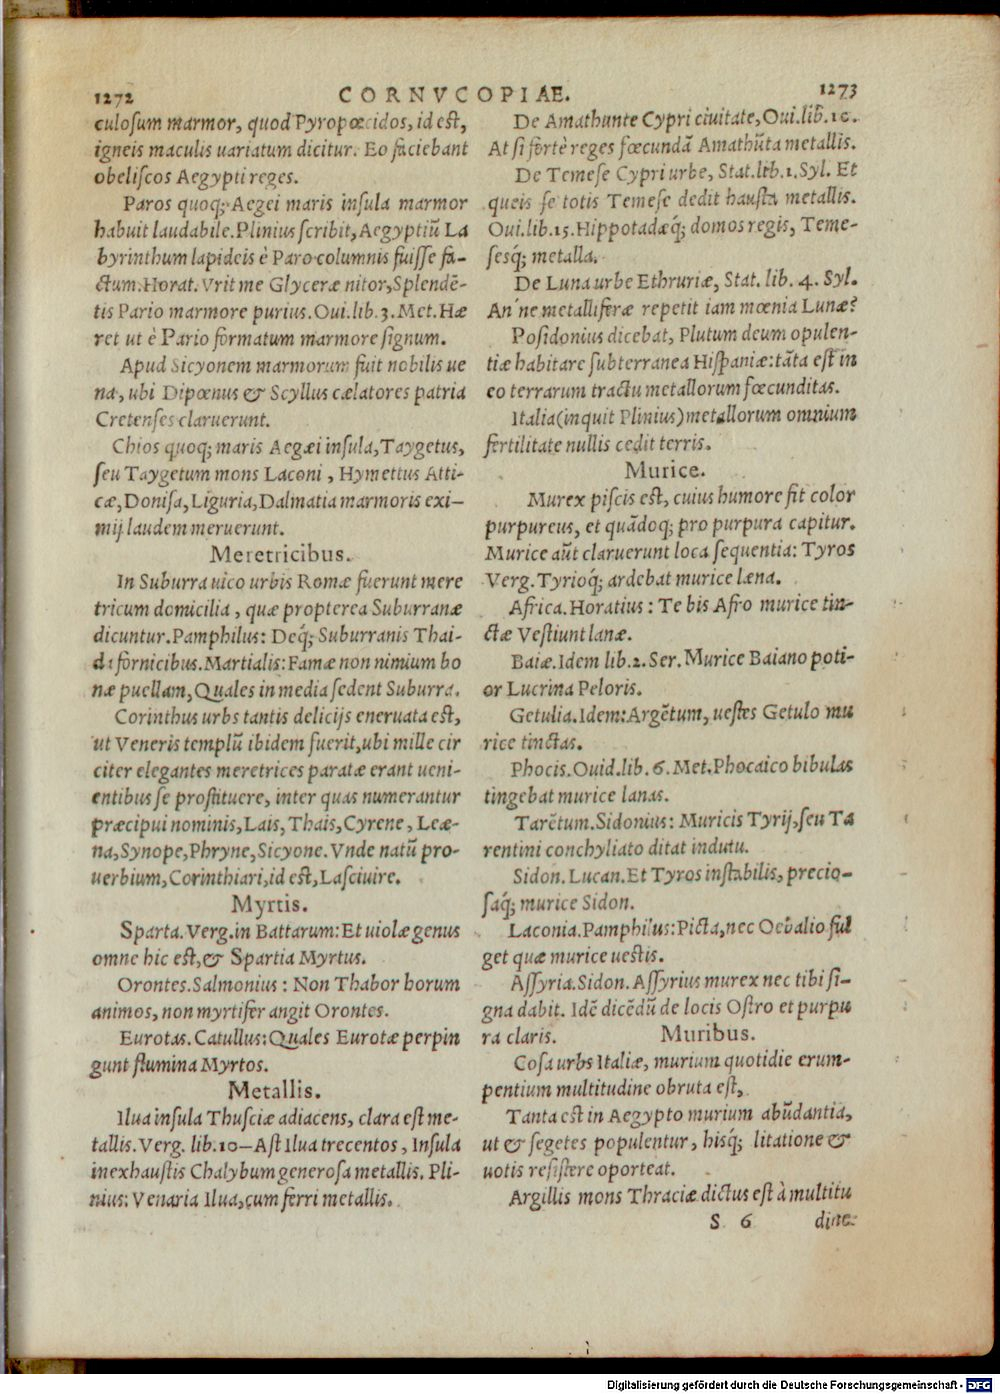 1272 CORNVCOPIAE. 1273
culosum marmor, quod Pyropœcidos, id est,
igneis maculis uariatum dicitur. Eo faciebant
obeliscos Aegypti reges.
Paros quoq; Aegei maris insula marmor
habuit laudabile. Plinius scribit, Aegyptiū La
byrinthum lapideis è Paro columnis fuisse fa-
ctum. Horat. Vrit me Glyceræ nitor, Splendē-
tis Pario marmore purius. Oui. lib. 3. Met. Hæ
ret ut è Pario formatum marmore signum.
Apud Sicyonem marmorum fuit nobilis ue
na, ubi Dipœnus & Scyllus cælatores patria
Cretenses claruerunt.
Chios quoq; maris Aegæi insula, Taygetus,
seu Taygetum mons Laconi, Hymettus Atti-
cæ, Donisa, Liguria, Dalmatia marmoris exi-
mij laudem meruerunt.
Meretricibus.
In Suburra uico urbis Romæ fuerunt mere
tricum domicilia, quæ propterea Suburranæ
dicuntur. Pamphilus: Deq́; Suburranis Thai-
di fornicibus. Martialis: Famæ non nimium bo
næ puellam, Quales in media sedent Suburra.
Corinthus urbs tantis delicijs eneruata est,
ut Veneris templū ibidem fuerit, ubi mille cir
citer elegantes meretrices paratæ erant ueni-
entibus se prostituere, inter quas numerantur
præcipui nominis, Lais, Thais, Cyrene, Leæ-
na, Synope, Phryne, Sicyone. Vnde natū pro-
uerbium, Corinthiari, id est, Lasciuire.
Myrtis.
Sparta. Verg. in Battarum: Et uiolæ genus
omne hic est, & Spartia Myrtus.
Orontes. Salmonius: Non Thabor horum
animos, non myrtifer angit Orontes.
Eurotas. Catullus: Quales Eurotæ perpin
gunt flumina Myrtos.
Metallis.
Ilua insula Thusciæ adiacens, clara est me-
tallis. Verg. lib. 10—Ast Ilua trecentos, Insula
inexhaustis Chalybum generosa metallis. Pli-
nius: Venaria Ilua, cum ferri metallis.
De Amathunte Cypri ciuitate, Oui. lib. 10.
At si fortè reges fœcundā Amathūta metallis.
De Temese Cypri urbe, Stat. lib. 1. Syl. Et
queis se totis Temese dedit hausta metallis.
Oui. lib. 15. Hippotadæq́; domos regis, Teme-
sesq́; metalla.
De Luna urbe Ethruriæ, Stat. lib. 4. Syl.
An'ne metalliferæ repetit iam mœnia Lunæ?
Posidonius dicebat, Plutum deum opulen-
tiæ habitare subterranea Hispaniæ: tāta est in
eo terrarum tractu metallorum fœcunditas.
Italia (inquit Plinius) metallorum omnium
fertilitate nullis cedit terris.
Murice.
Murex piscis est, cuius humore fit color
purpureus, et quādoq; pro purpura capitur.
Murice aūt claruerunt loca sequentia: Tyros
Verg. Tyrioq́; ardebat murice læna.
Africa. Horatius: Te bis Afro murice tin-
ctæ Vestiunt lanæ.
Baiæ. Idem lib. 2. Ser. Murice Baiano poti-
or Lucrina Peloris.
Getulia. Idem: Argētum, uestes Getulo mu
rice tinctas.
Phocis. Ouid. lib. 6. Met. Phocaico bibulas
tingebat murice lanas.
Tarētum. Sidonius: Muricis Tyrij, seu Ta
rentini conchyliato ditat indutu.
Sidon. Lucan. Et Tyros instabilis, precio-
saq́; murice Sidon.
Laconia. Pamphilus: Picta, nec Oebalio ful
get quæ murice uestis.
Assyriæ. Sidon. Assyrius murex nec tibi si-
gna dabit. Idē dicēdū de locis Ostro et purpu
ra claris. Muribus.
Cosa urbs Italiæ, murium quotidie erum-
pentium multitudine obruta est,
Tanta est in Aegypto murium abūdantia,
ut & segetes populentur, hisq́; litatione &
uotis resistere oporteat.
Argillis mons Thraciæ dictus est à multitu
S 6 dine
Digitalisierung gefördert durch die Deutsche Forschungsgemeinschaft - DFG